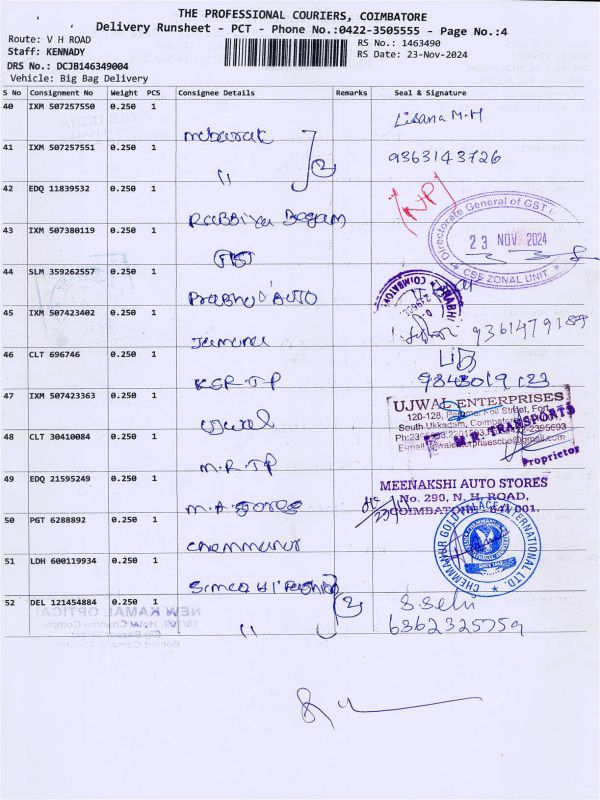 THE PROFESSIONAL COURIERS, COIMBATORE
Delivery Runsheet - PCT - Phone No.:0422-3505555 - Page No.:4
Route: V H ROAD
RS No.: 1463490
Staff: KENNADY
RS Date: 23-Nov-2024
DRS No.: DCJB146349004
Vehicle: Big Bag Delivery
S No Consignment No Weight PCS Consignee Details Remarks Seal & Signature
40 IXM 507257550 0.250 1
mubarak
Lisana M.H
41 IXM 507257551 0.250 1
"
2
9363143726
42 EDQ 11839532 0.250 1
Rabbiya Begam
(NP)
43 IXM 507380119 0.250 1
GST
Directorate General of GST I
23 NOV 2024
CBE ZONAL UNIT
44 SLM 359262557 0.250 1
Prabhu Auto
PRABHU
COIMBATORE
45 IXM 507423402 0.250 1
Jamuna
46 CLT 696746 0.250 1
KGR TP
9843019123
47 IXM 507423363 0.250 1
Ujwal
UJWAL ENTERPRISES
120-128, Perumal Koil Street, Fort,
South Ukkadam, Coimbatore
48 CLT 30410084 0.250 1
M.R.TP
M.R. TRANSPORTS
Proprietor
49 EDQ 21595249 0.250 1
M.A Stores
MEENAKSHI AUTO STORES
No. 290, N. H. ROAD,
COIMBATORE - 641 001.
50 PGT 6288892 0.250 1
Chemmanur
CHEMMANUR GOLD PALACE INTERNATIONAL LTD.
51 LDH 600119934 0.250 1
52 DEL 121454884 0.250 1
"
2
S. Selvi
6362325759
NEW KAMAL OPTICAL